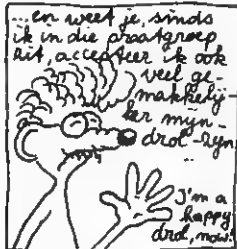 ...en weet je, sinds
ik in die praatgroep
zit, accepteer ik ook
veel ge-
makkelij-
ker mijn
drol-zijn.
I'm a
happy
drol, now!